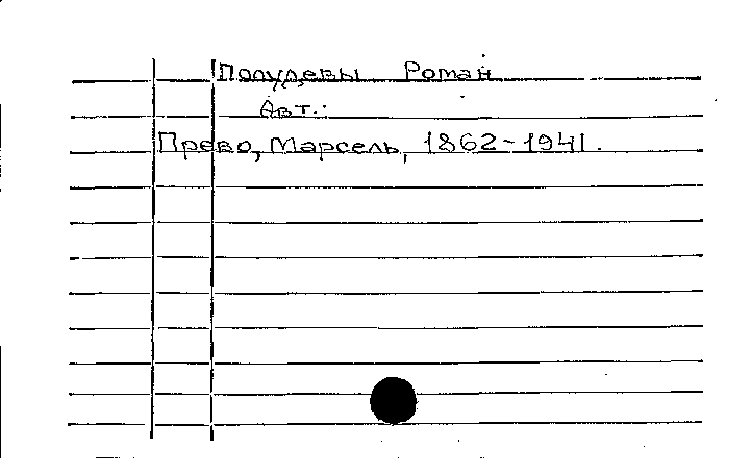 Полудевы Роман
Авт.:
Прево, Марсель, 1862-1941.